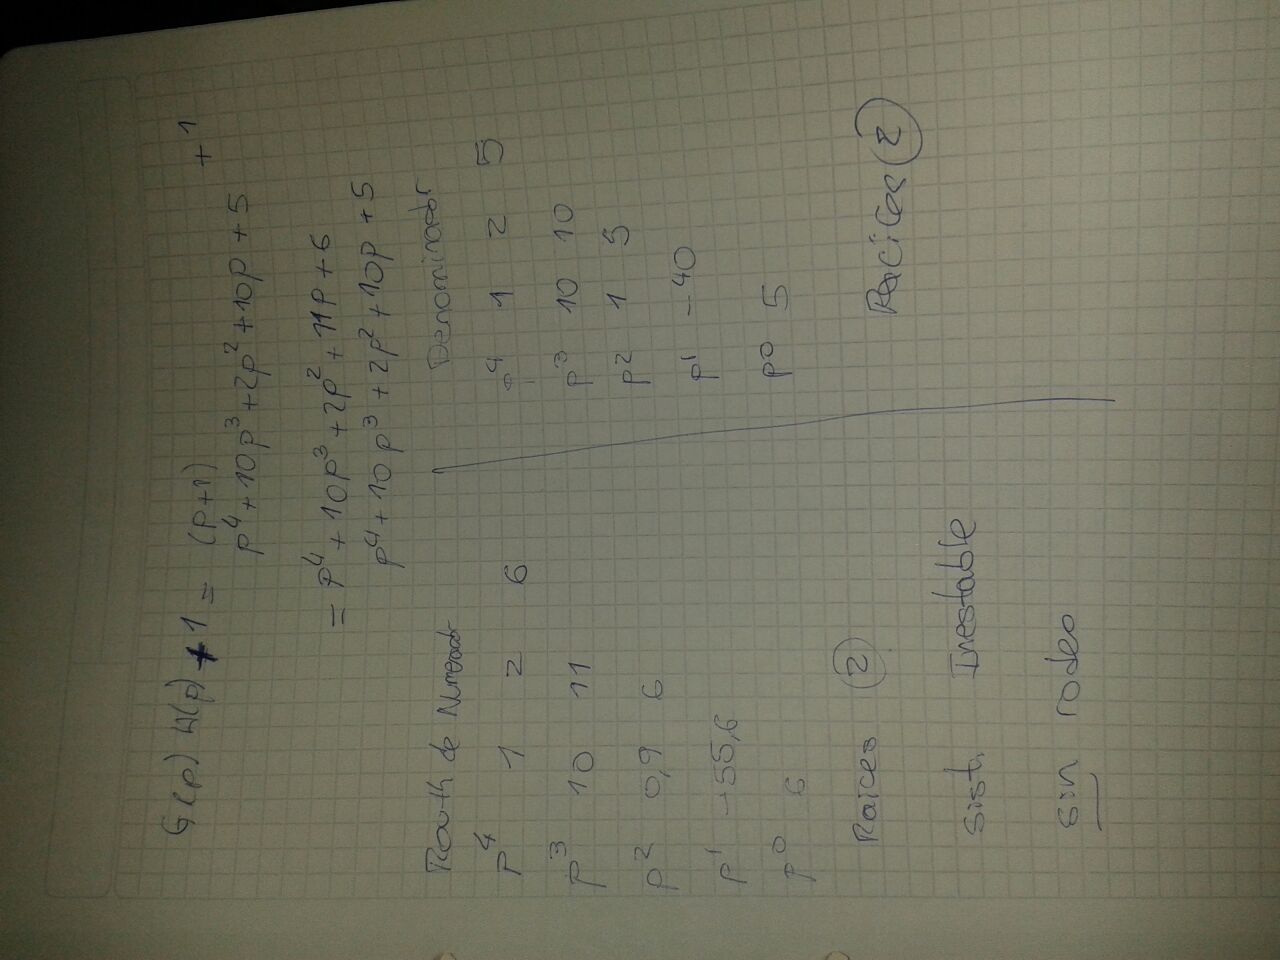 G(p) H(p) + 1 = (p+1)
p⁴ + 10p³ + 2p² + 10p + 5 + 1
= p⁴ + 10p³ + 2p² + 11p + 6
p⁴ + 10p³ + 2p² + 10p + 5
Routh de Numerador
p⁴ 1 2 6
p³ 10 11
p² 0,9 6
p¹ -55,6
p⁰ 6
Raices 2
Sist. Inestable
sin rodeo
Denominador
p⁴ 1 2 5
p³ 10 10
p² 1 5
p¹ -40
p⁰ 5
Raices 2